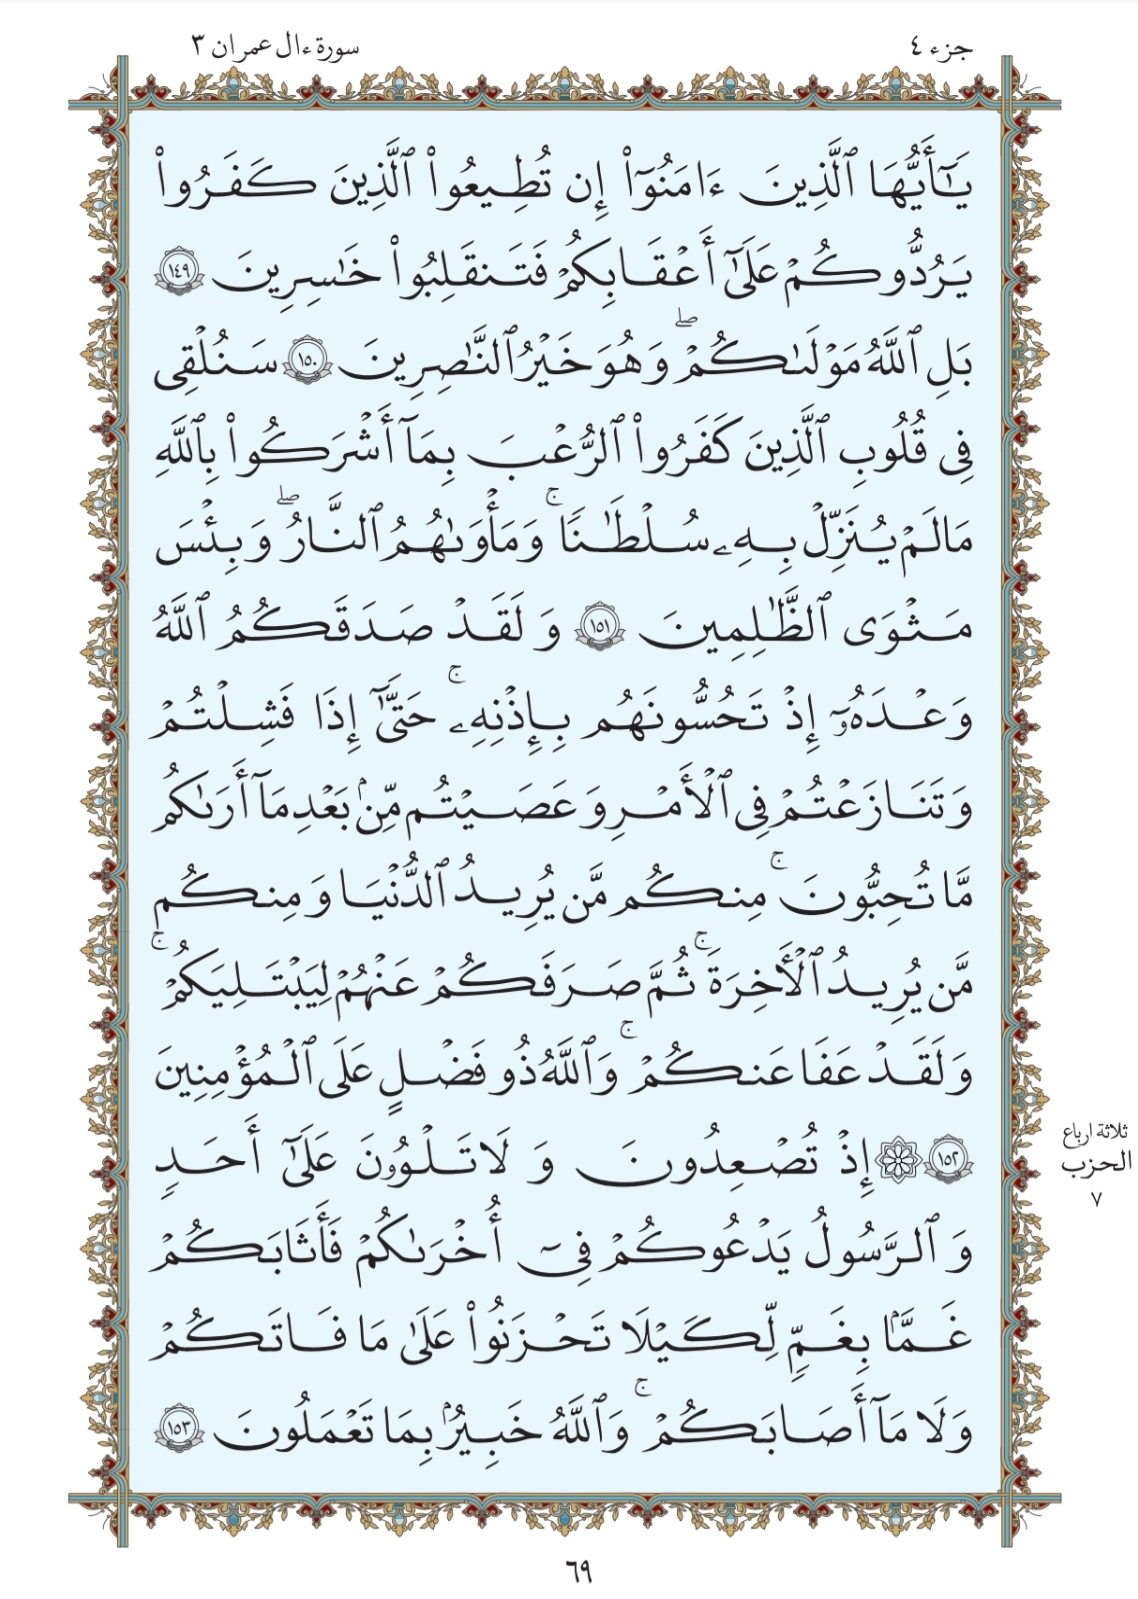 جزء ٤
سورة ءال عمران ٣
يَٰٓأَيُّهَا ٱلَّذِينَ ءَامَنُوٓا۟ إِن تُطِيعُوا۟ ٱلَّذِينَ كَفَرُوا۟
يَرُدُّوكُمْ عَلَىٰٓ أَعْقَٰبِكُمْ فَتَنقَلِبُوا۟ خَٰسِرِينَ ١٤٩
بَلِ ٱللَّهُ مَوْلَىٰكُمْ ۖ وَهُوَ خَيْرُ ٱلنَّٰصِرِينَ ١٥٠ سَنُلْقِى
فِى قُلُوبِ ٱلَّذِينَ كَفَرُوا۟ ٱلرُّعْبَ بِمَآ أَشْرَكُوا۟ بِٱللَّهِ
مَا لَمْ يُنَزِّلْ بِهِۦ سُلْطَٰنًا ۚ وَمَأْوَىٰهُمُ ٱلنَّارُ ۖ وَبِئْسَ
مَثْوَى ٱلظَّٰلِمِينَ ١٥١ وَلَقَدْ صَدَقَكُمُ ٱللَّهُ
وَعْدَهُۥٓ إِذْ تَحُسُّونَهُم بِإِذْنِهِۦ ۚ حَتَّىٰٓ إِذَا فَشِلْتُمْ
وَتَنَازَعْتُمْ فِى ٱلْأَمْرِ وَعَصَيْتُم مِّنۢ بَعْدِ مَآ أَرَىٰكُم
مَّا تُحِبُّونَ ۚ مِنكُم مَّن يُرِيدُ ٱلدُّنْيَا وَمِنكُم
مَّن يُرِيدُ ٱلْأَخِرَةَ ۚ ثُمَّ صَرَفَكُمْ عَنْهُمْ لِيَبْتَلِيَكُمْ ۚ
وَلَقَدْ عَفَا عَنكُمْ ۚ وَٱللَّهُ ذُو فَضْلٍ عَلَى ٱلْمُؤْمِنِينَ
١٥٢ ۞ إِذْ تُصْعِدُونَ وَلَا تَلْوُۥنَ عَلَىٰٓ أَحَدٍ
وَٱلرَّسُولُ يَدْعُوكُمْ فِىٓ أُخْرَىٰكُمْ فَأَثَٰبَكُمْ
غَمًّۢا بِغَمٍّ لِّكَيْلَا تَحْزَنُوا۟ عَلَىٰ مَا فَاتَكُمْ
وَلَا مَآ أَصَٰبَكُمْ ۚ وَٱللَّهُ خَبِيرٌۢ بِمَا تَعْمَلُونَ ١٥٣
ثلاثة ارباع
الحزب
٧
٦٩